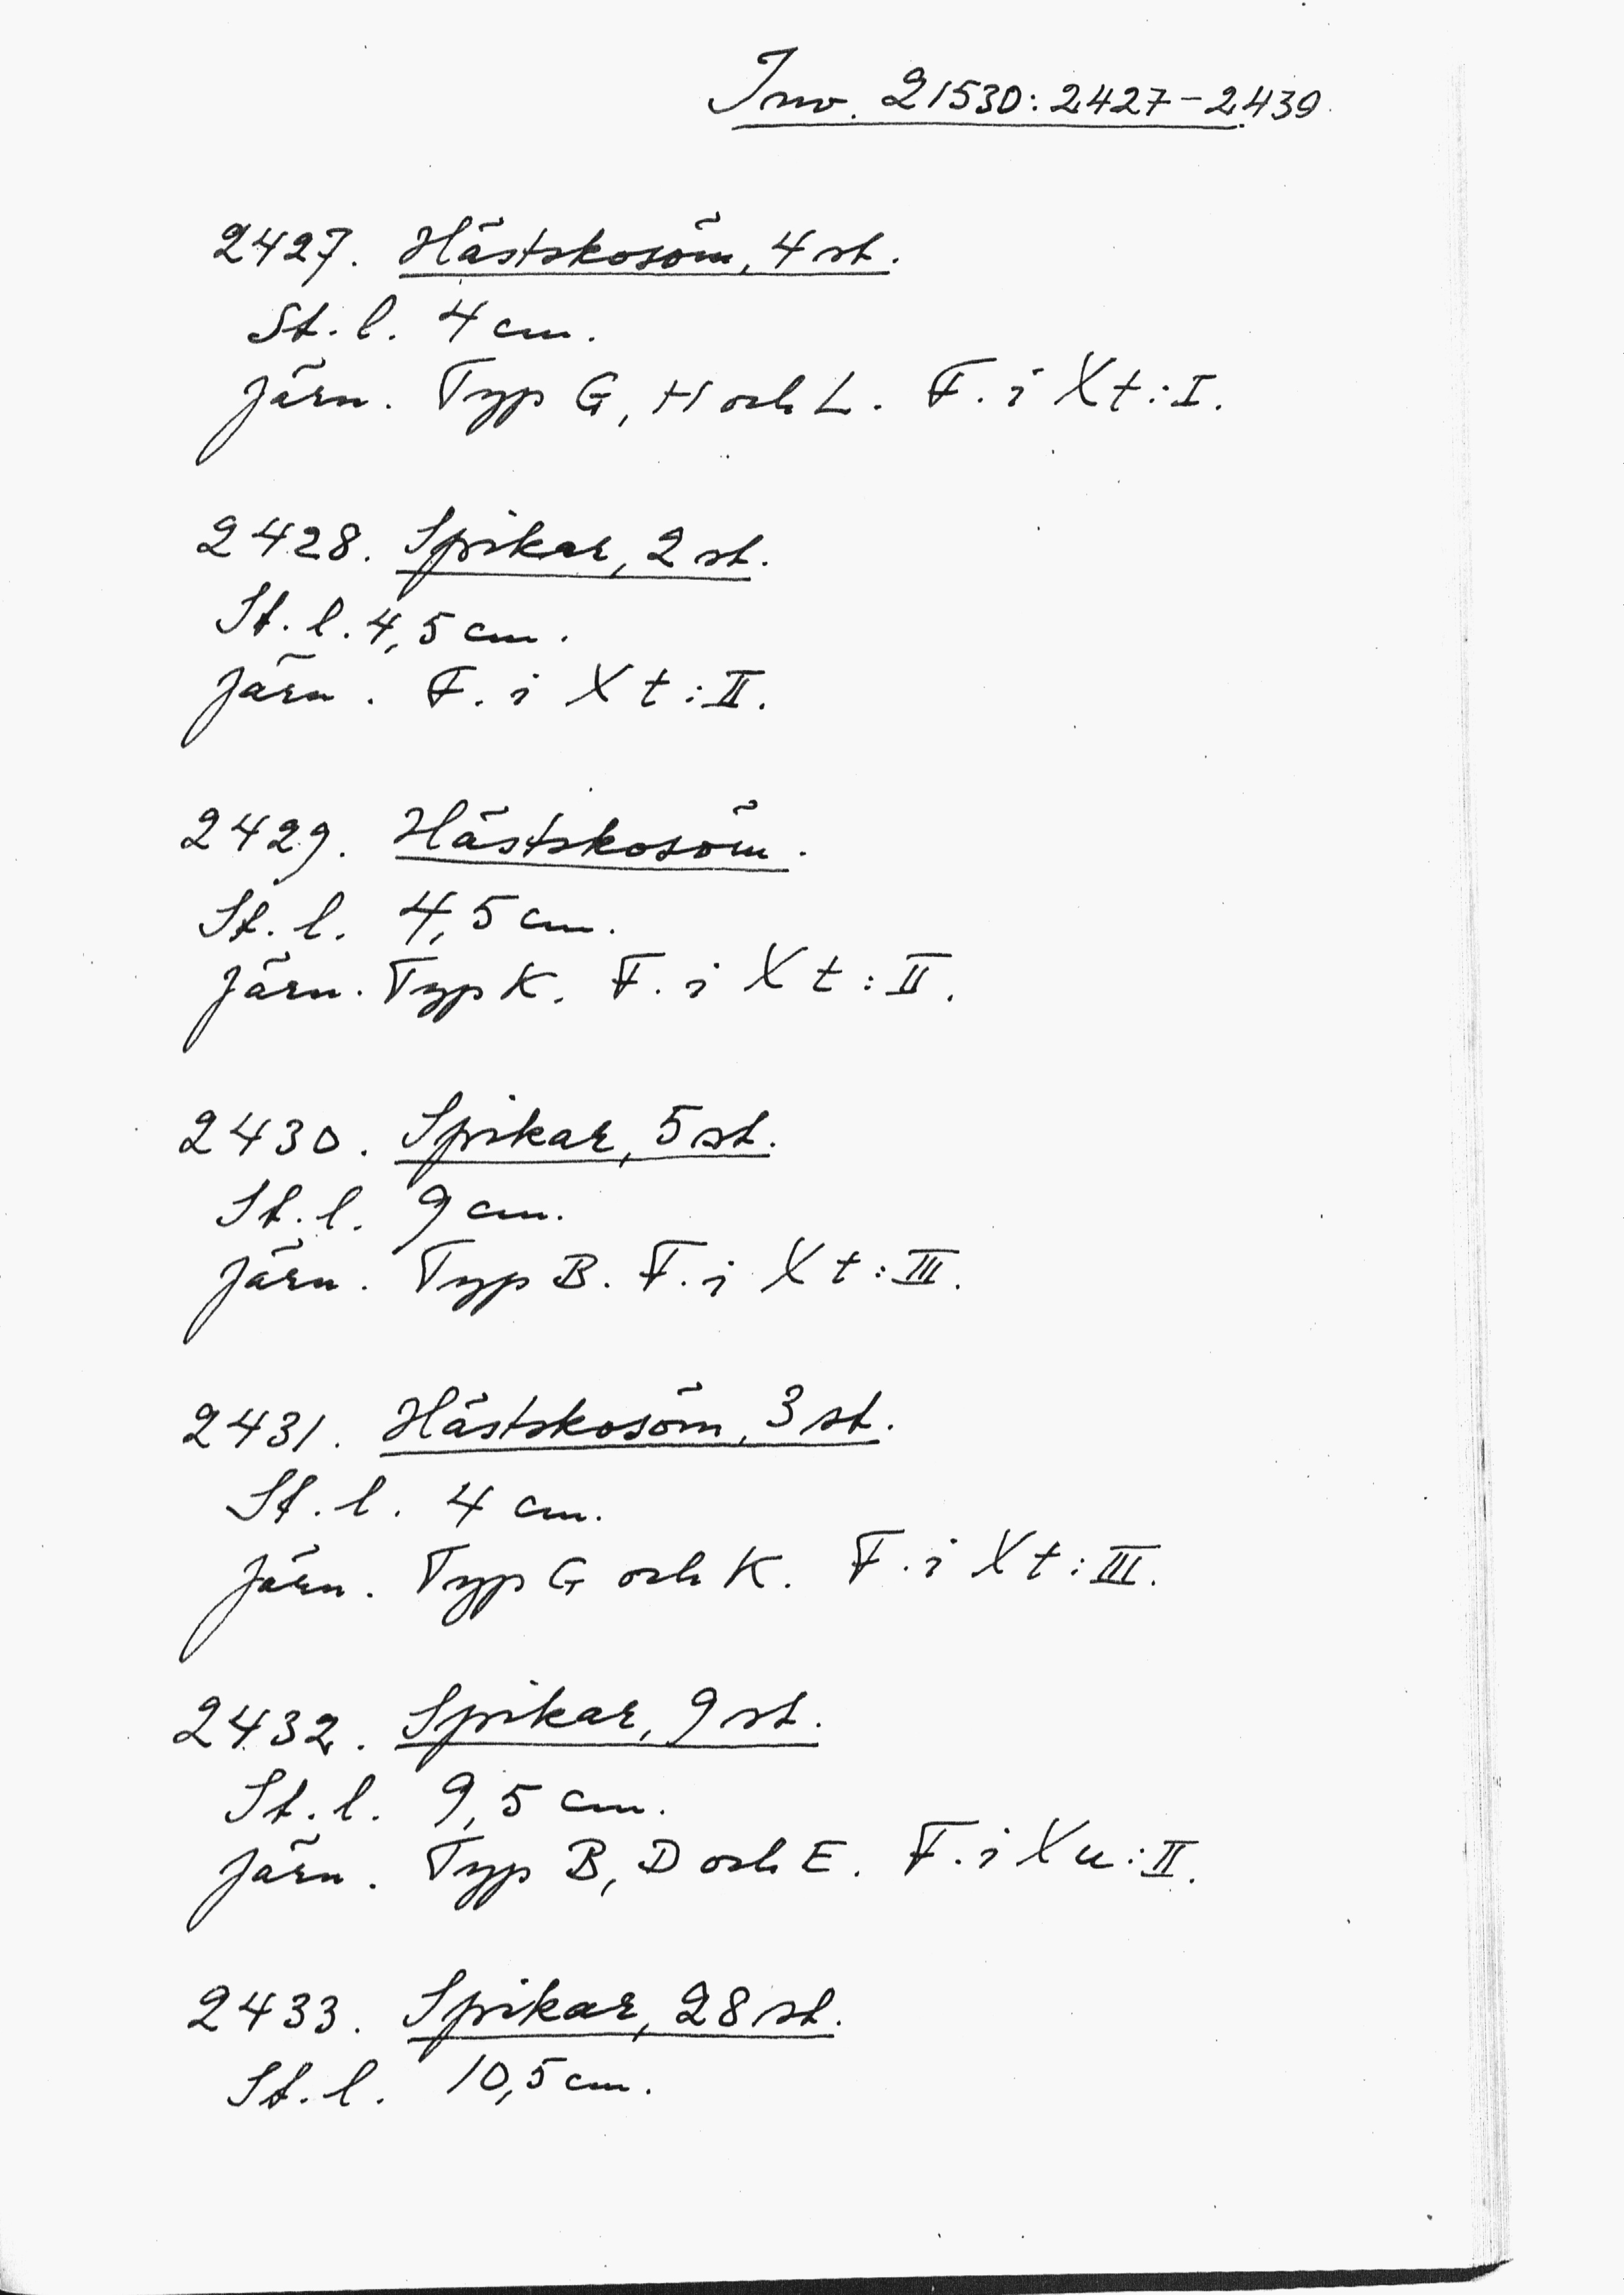 Inv. 21530:2427-2439
2427. Hästskosöm, 4 st.
St. l. 4 cm.
Järn. Typ G, H och L. F. i Xt:I.
2428. Spikar, 2 st.
St. l. 4,5 cm.
Järn. F. i Xt:II.
2429. Hästskosöm.
St. l. 4,5 cm.
Järn. Typ K. F. i Xt:II.
2430. Spikar, 5 st.
St. l. 9 cm.
Järn. Typ B. F. i Xt:III.
2431. Hästskosöm, 3 st.
St. l. 4 cm.
Järn. Typ G och K. F. i Xt:III.
2432. Spikar, 9 st.
St. l. 9,5 cm.
Järn. Typ B, D och E. F. i Xu:II.
2433. Spikar, 28 st.
St. l. 10,5 cm.